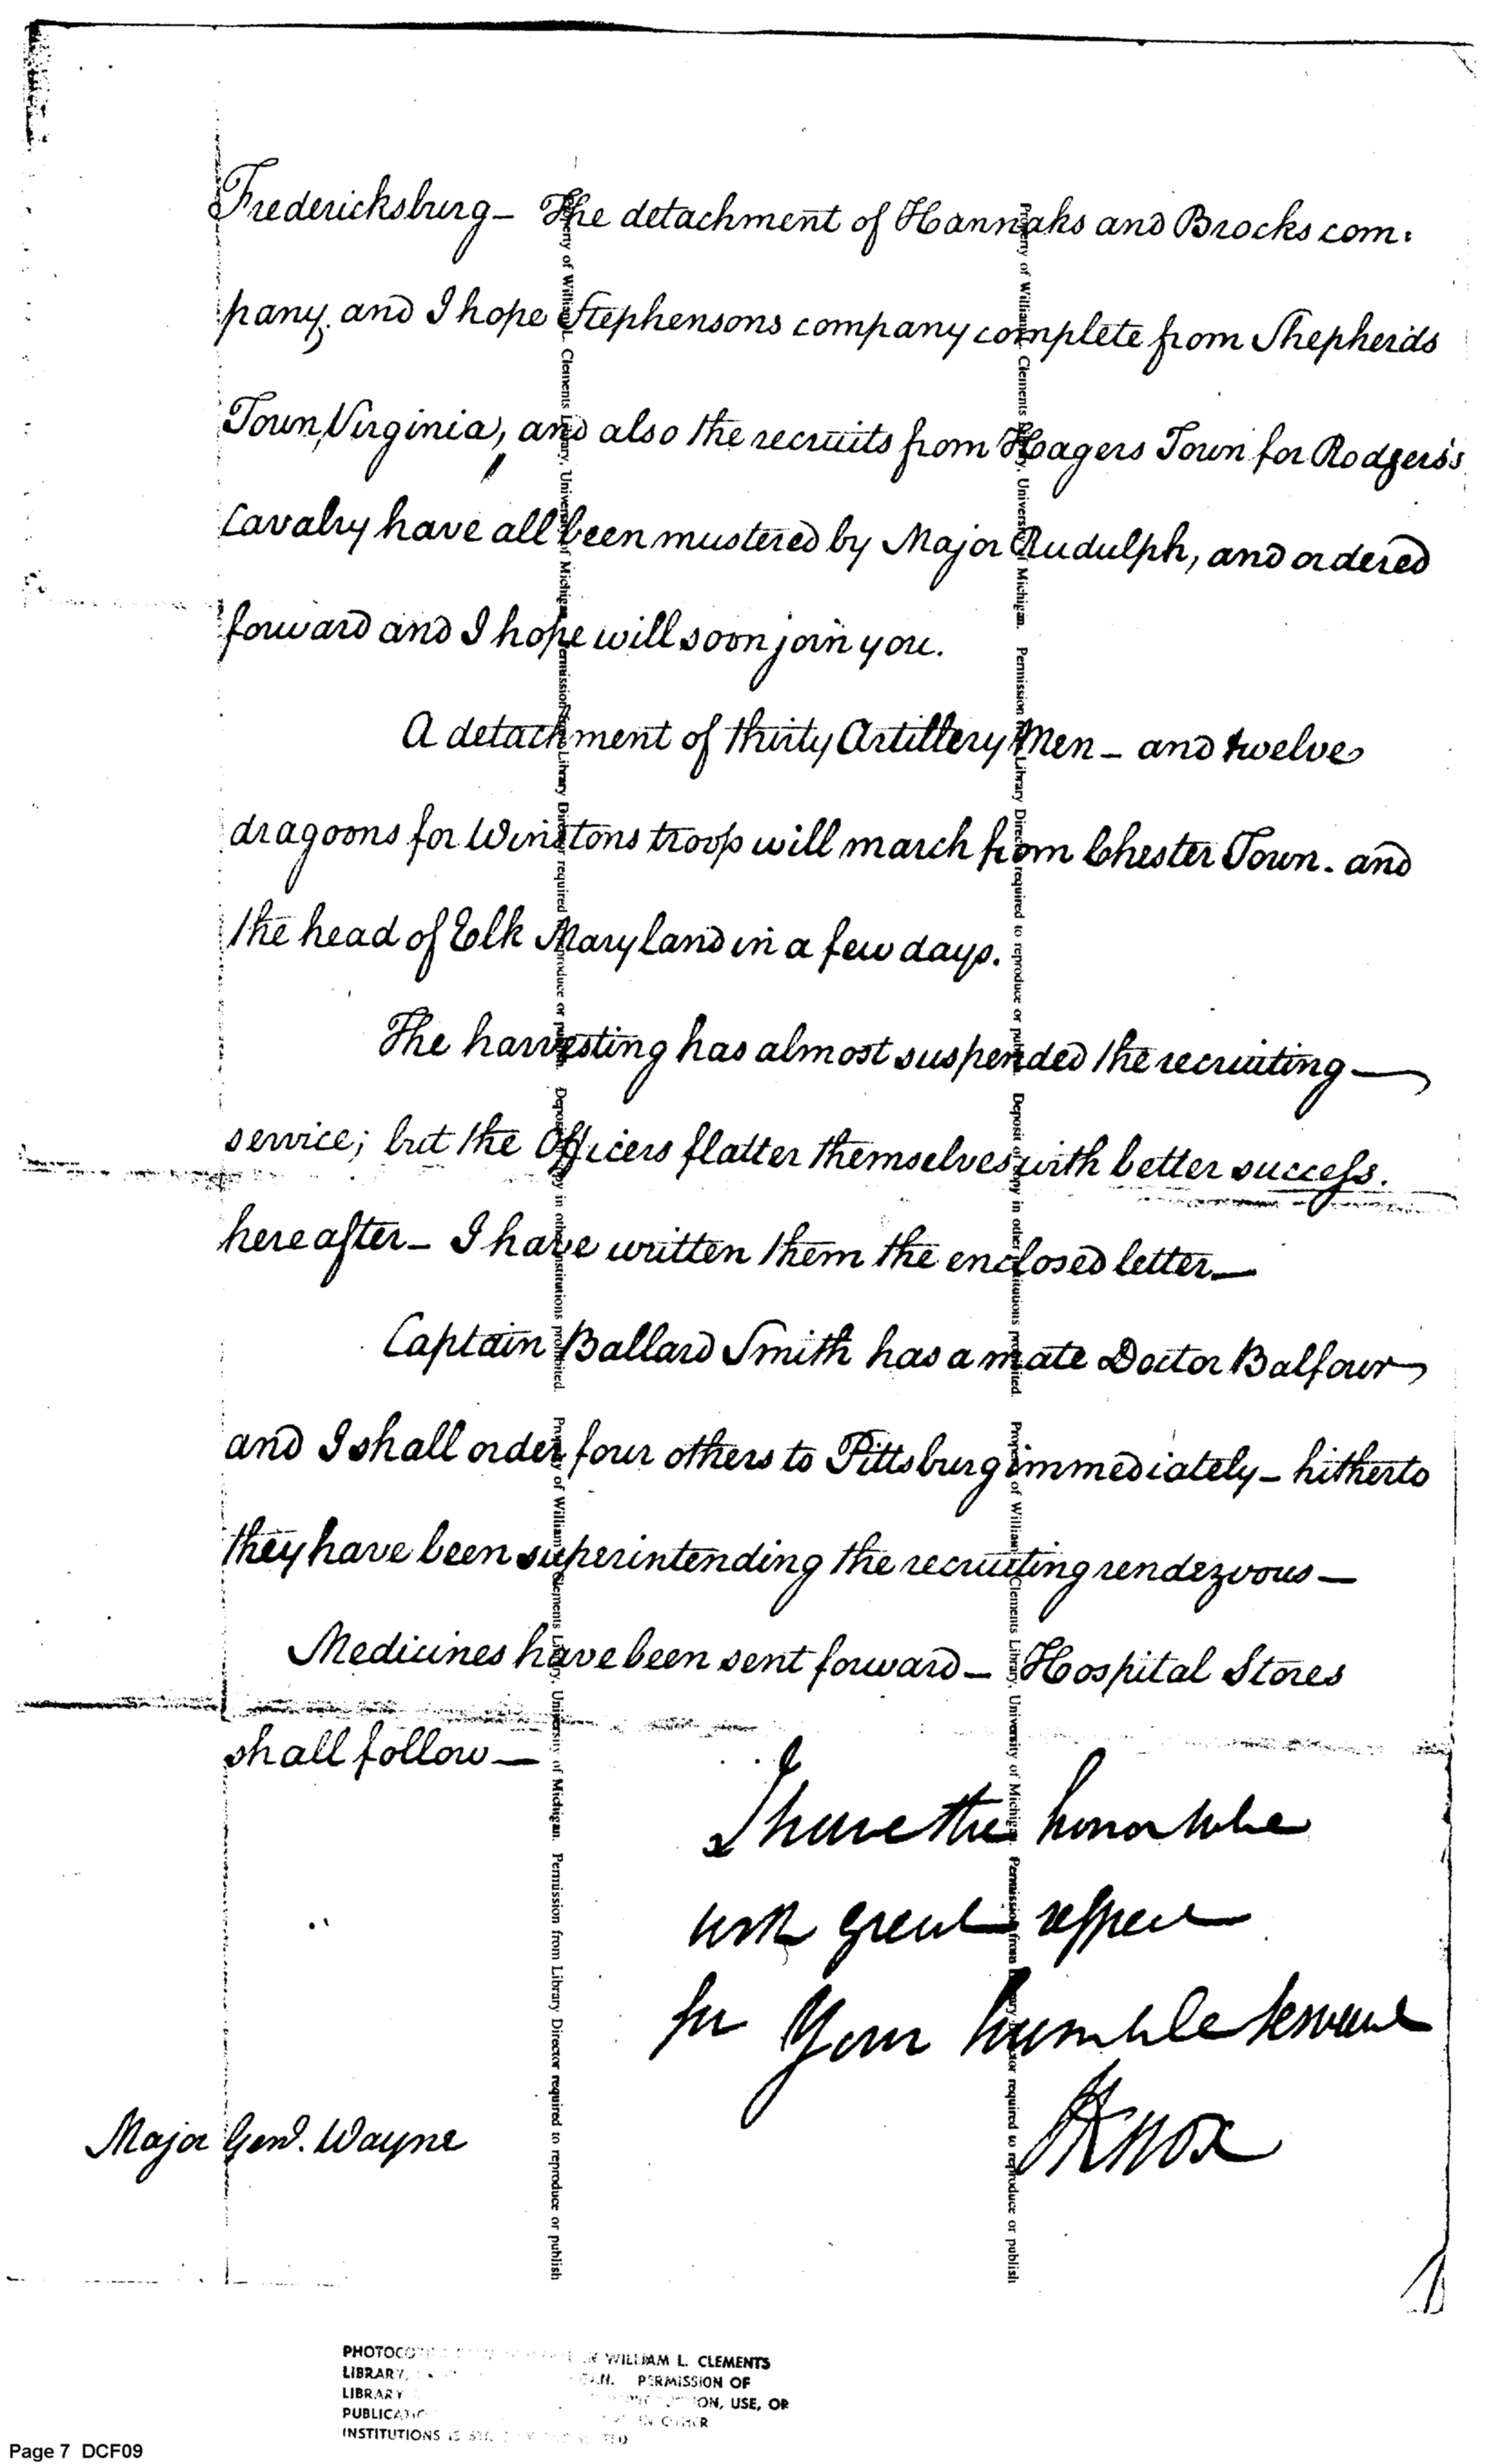 Fredericksburg – The detachment of Hannahs and Brocks com:
pany, and I hope Stephensons company complete from Shepherds
Town, Virginia, and also the recruits from Hagers Town for Rodgers's
Cavalry have all been mustered by Major Rudulph, and ordered
forward and I hope will soon join you.
A detachment of thirty Artillery Men – and twelve
dragoons for Winstons troop will march from Chester Town. and
the head of Elk Maryland in a few days.
The harvesting has almost suspended the recruiting —
service; but the Officers flatter themselves with better success.
hereafter – I have written them the enclosed letter —
Captain Ballard Smith has a mate Doctor Balfour
and I shall order four others to Pittsburg immediately – hitherto
they have been superintending the recruiting rendezvous —
Medicines have been sent forward – Hospital Stores
shall follow —
I have the honor to be
with great respect
Your humble Servant
HKnox
Major Genl. Wayne
Property of William L. Clements Library, University of Michigan. Permission from Library Director required to reproduce or publish. Deposit of copy in other institutions prohibited. Property of William L. Clements Library, University of Michigan. Permission from Library Director required to reproduce or publish
Property of William L. Clements Library, University of Michigan. Permission from Library Director required to reproduce or publish. Deposit of copy in other institutions prohibited. Property of William L. Clements Library, University of Michigan. Permission from Library Director required to reproduce or publish
WILLIAM L. CLEMENTS
LIBRARY, PERMISSION OF
LIBRARY USE, OR
OTHER
INSTITUTIONS
Page 7 DCF09